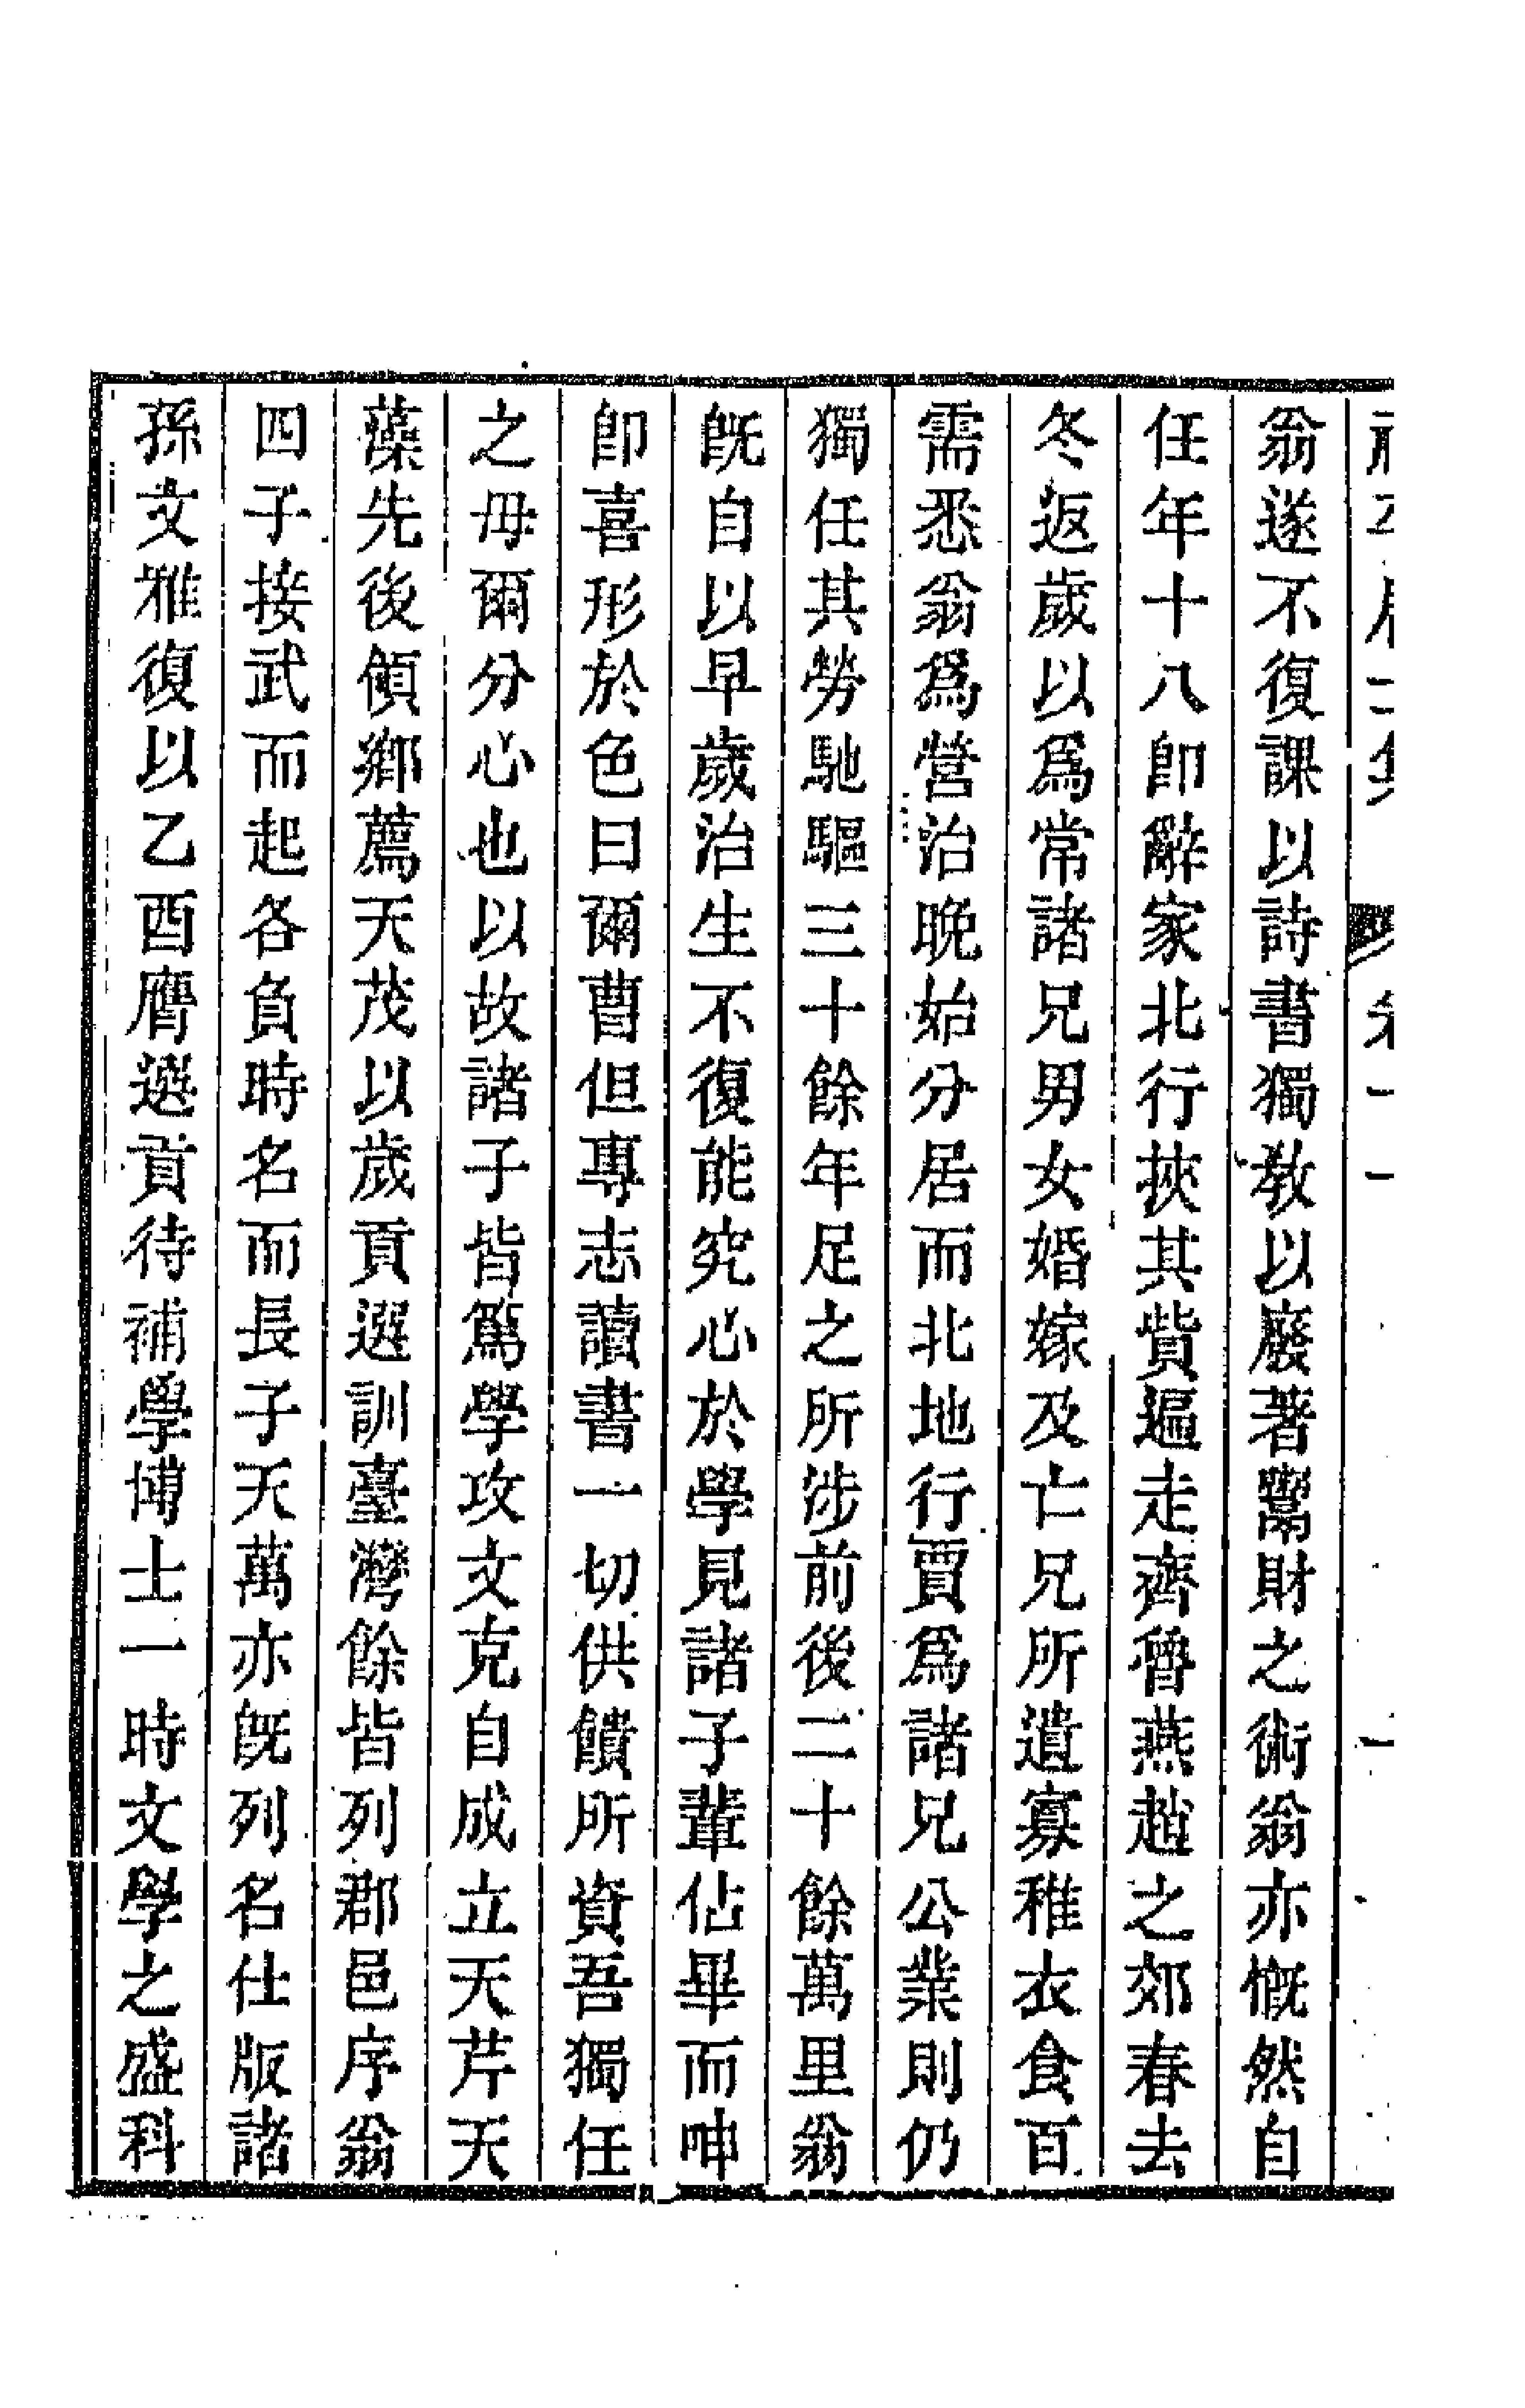 翁遂不復課以詩書獨教以廢著鬻財之術翁亦慨然自
任年十八卽辭家北行挾其貲遍走齊魯燕趙之郊春去
冬返歲以爲常諸兄男女婚嫁及亡兄所遺寡稚衣食百
需悉翁爲營治晚始分居而北地行賈爲諸兄公業則仍
獨任其勞馳驅三十餘年足之所涉前後二十餘萬里翁
旣自以早歲治生不復能究心於學見諸子輩佔畢而呻
卽喜形於色曰爾曹但專志讀書一切供饋所資吾獨任
之毋爾分心也以故諸子皆篤學攻文克自成立天芹天
藻先後領鄉薦天茂以歲貢選訓臺灣餘皆列郡邑序翁
四子接武而起各負時名而長子天萬亦旣列名仕版諸
孫文雅復以乙酉膺選貢待補學博士一時文學之盛科